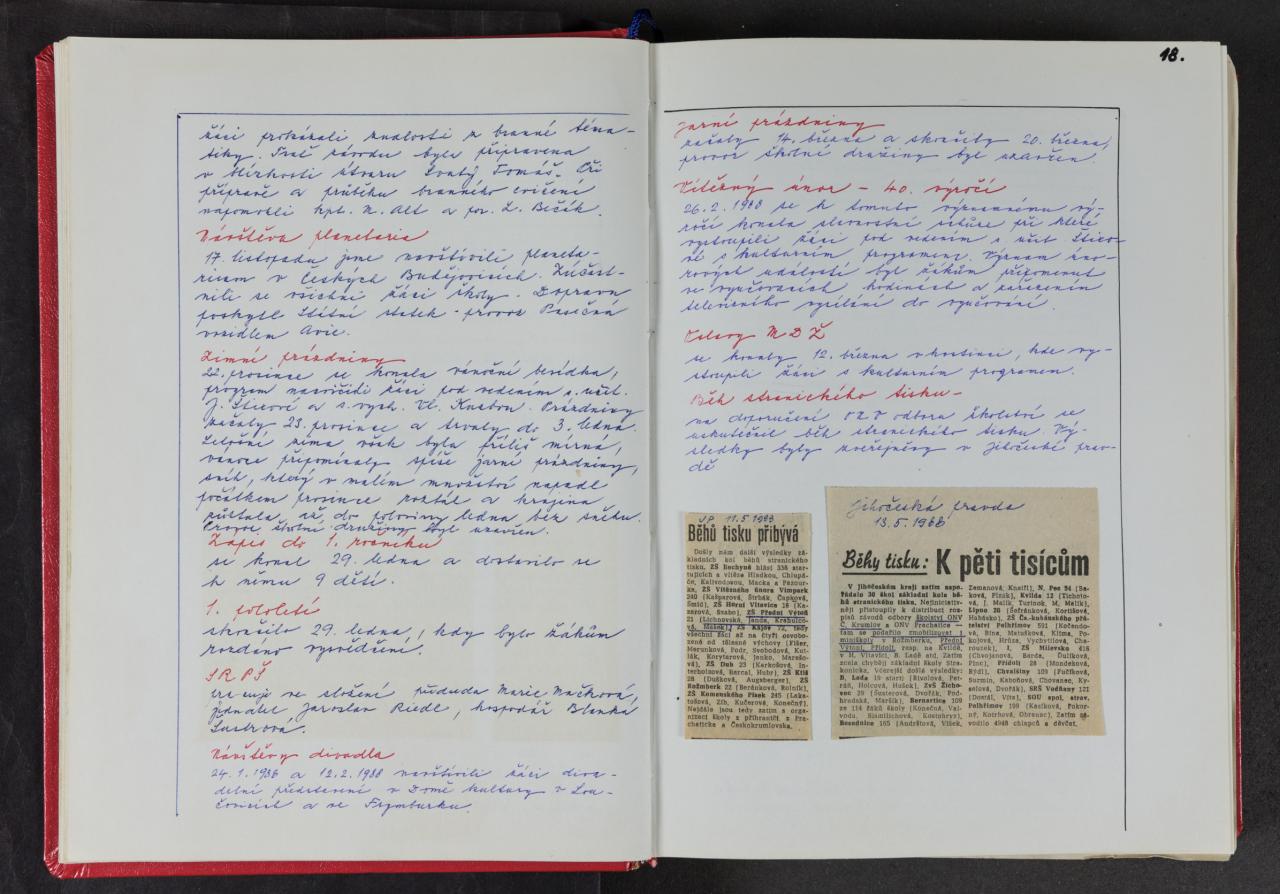 žáci prokázali znalosti z branné téma-
tiky. Trať závodu byla připravena
v blízkosti útvaru Svatý Tomáš. Při
přípravě a průběhu branného cvičení
napomohli kpt. M. Alt a por. Z. Bičák.
Návštěva planetária
17. listopadu jsme navštívili planeta-
rium v Českých Budějovicích. Zúčast-
nili se všichni žáci školy. Dopravu
poskytl Státní statek - provoz Pasečná
vozidlem Avie.
Zimní prázdniny
22. prosince se konala vánoční besídka,
program nacvičili žáci pod vedením s. učit.
J. Šticové a s. vych. Vl. Prázdniny
začaly 23. prosince a trvaly do 3. ledna.
Letošní zima však byla příliš mírná,
vánoce připomínaly spíše jarní prázdniny,
sníh, který v malém množství napadl
počátkem prosince roztál a krajina
zůstala až do poloviny ledna bez sněhu.
Provoz školní družiny byl uzavřen.
Zápis do 1. ročníku
se konal 29. ledna a dostavilo se
k němu 9 dětí.
1. pololetí
skončilo 29. ledna, kdy bylo žákům
rozdáno vysvědčení.
SRPŠ
pracuje ve složení předseda Marie Mačková,
jednatel Jaroslav Riedl, hospodář Blanka
Šustrová.
Návštěvy divadla
24.1.1988 a 12.2.1988 navštívili žáci diva-
delní představení v Domě kultury v Lou-
čovicích a ve Frymburku.
18.
Jarní prázdniny
začaly 14. března a skončily 20. března,
provoz školní družiny byl uzavřen.
Vítězný únor - 40. výročí
26.2.1988 se k tomuto významnému vý-
ročí konala slavnostní schůze při které
vystoupili žáci pod vedením s. učit. Štico-
vé s kulturním programem. Význam úno-
rových událostí byl žákům připomenut
ve vyučovacích hodinách a zařazením
televizního vysílání do vyučování.
Oslavy MDŽ
se konaly 12. března v hostinci, kde vy-
stoupili žáci s kulturním programem.
Běh stranického tisku -
na doporučení ONV odboru školství se
uskutečnil běh stranického tisku. Vý-
sledky byly zveřejněny v Jihočeské prav-
dě
JP 11.5.1988
Běhů tisku přibývá
Došly nám další výsledky zá-
kladních kol běhů stranického
tisku. ZŠ Bechyně hlásí 336 star-
tujících a vítěze Hladkou, Chlupá-
če, Kalivodovou, Macka a Pazour-
ka, ZŠ Vítězného února Vimperk
240 (Kašparová, Štrbák, Čapková,
Šmíd), ZŠ Horní Vltavice 16 (Ka-
zarová, Szabo), ZŠ Přední Výtoň
21 (Lichnovská, Janda, Krahulco-
vá, Mašek), ZŠ Kájov 72, tedy
všechni žáci až na čtyři osvobo-
zené od tělesné výchovy (Fišer,
Merunková, Fodr, Svobodová, Kut-
lák, Korytarová, Jenko, Marešo-
vá), ZŠ Dub 23 (Karkošová, In-
terholzová, Bercal, Huby), ZŠ Ktiš
28 (Dušková, Augsberger), ZŠ
Rožmberk 22 (Beránková, Rolník),
ZŠ Komenského Písek 245 (Laka-
tošová, Zíb, Kučerová, Konečný).
Nejdále jsou tedy zatím s orga-
nizací školy z příhraničí, z Pra-
chaticka a Českokrumlovska.
Jihočeská pravda
13.5.1988
Běhy tisku: K pěti tisícům
V jihočeském kraji zatím uspo-
řádalo 30 škol základní kola bě-
hů stranického tisku. Nejiniciativ-
něji přistoupily k distribuci roz-
pisů závodů odbory školství ONV
Č. Krumlov a ONV Prachatice —
tam se podařilo zmobilizovat i
miniškoly v Rožmberku, Přední
Výtoni, Přídolí, resp. na Kvildě,
v H. Vltavici, B. Ladě atd. Zatím
zcela chybějí základní školy Stra-
konicka. Včerejší došlé výsledky:
B. Lada 19 startů (Rivolová, Pet-
rzán, Holcová, Hašek), ZvŠ Žicho-
vec 29 (Šusterová, Dvořák, Pod-
hradská, Maršík), Bernartice 109
ze 114 žáků školy (Konečná, Val-
voda, Slamilichová, Kostohryz),
Besednice 165 (Andrštová, Vlšek,
Zemanová, Kneifl), N. Pec 54 (Ba-
ková, Plzák), Kvilda 12 (Tichoto-
vá, J. Malík, Turinek, M. Malík),
Lipno 26 (Šefránková, Kortišová,
Hubásko), ZŠ Čs.-kubánského přá-
telství Pelhřimov 591 (Kočendo-
vá, Bína, Matušková, Klíma, Po-
kojová, Hrůza, Vychytilová, Cha-
rouzek), I. ZŠ Milevsko 616
(Chvojanová, Barda, Ďulíková,
Pinc), Přídolí 28 (Mondeková,
Rýdl), Chvalšiny 109 (Fučíková,
Surmin, Kaboňová, Chovanec, Ky-
selová, Dvořák), SRŠ Vodňany 121
(Dortál, Vita), SOU spol. strav.
Pelhřimov 199 (Kasíková, Pokor-
ný, Kotrhová, Obrenec). Zatím zá-
vodilo 4948 chlapců a děvčat.